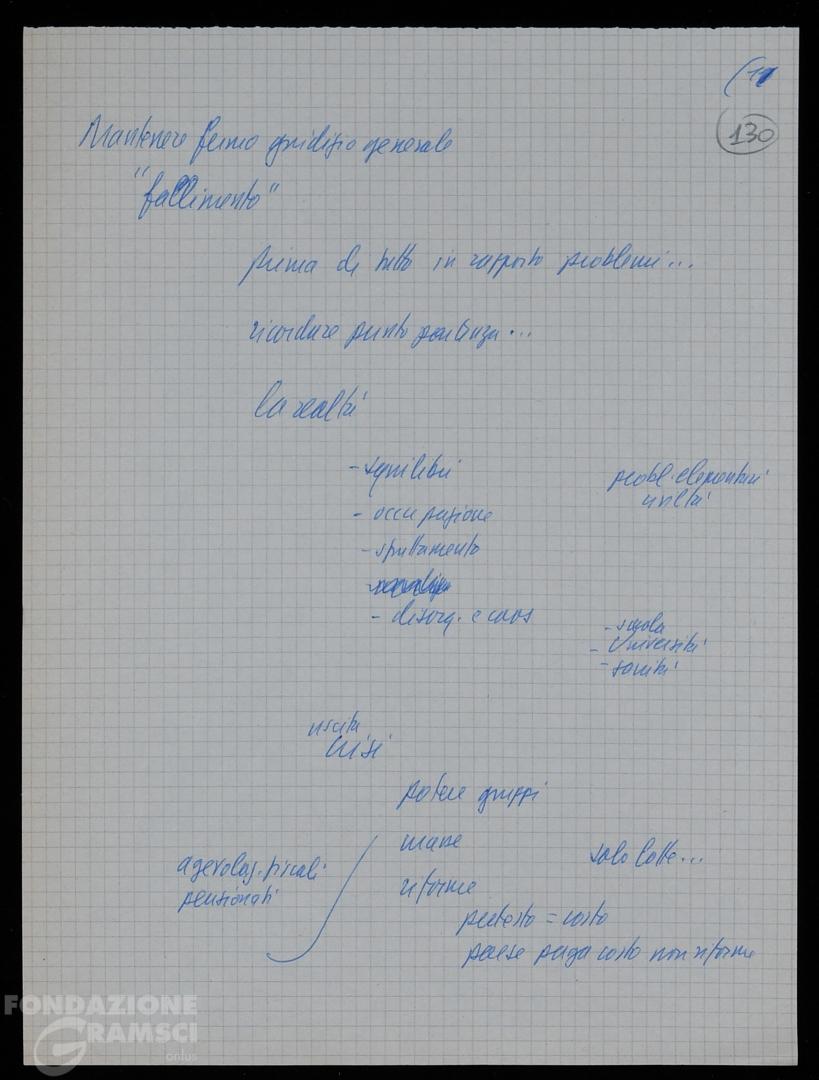 (11
130
Mantenere fermo giudizio generale
"fallimento"
prima di tutto in rapporto problemi...
ricordare punto partenza...
la realtà
- squilibri
- occupazione
- sfruttamento
- disorg. e caos
probl. elementari
civiltà
- scuola
- Università
- sanità
uscita
crisi
potere gruppi
masse
riforme
solo lotte...
agevolaz. fiscali
pensionati
pretesto = costo
paese paga costo non riforme
FONDAZIONE
GRAMSCI
onlus